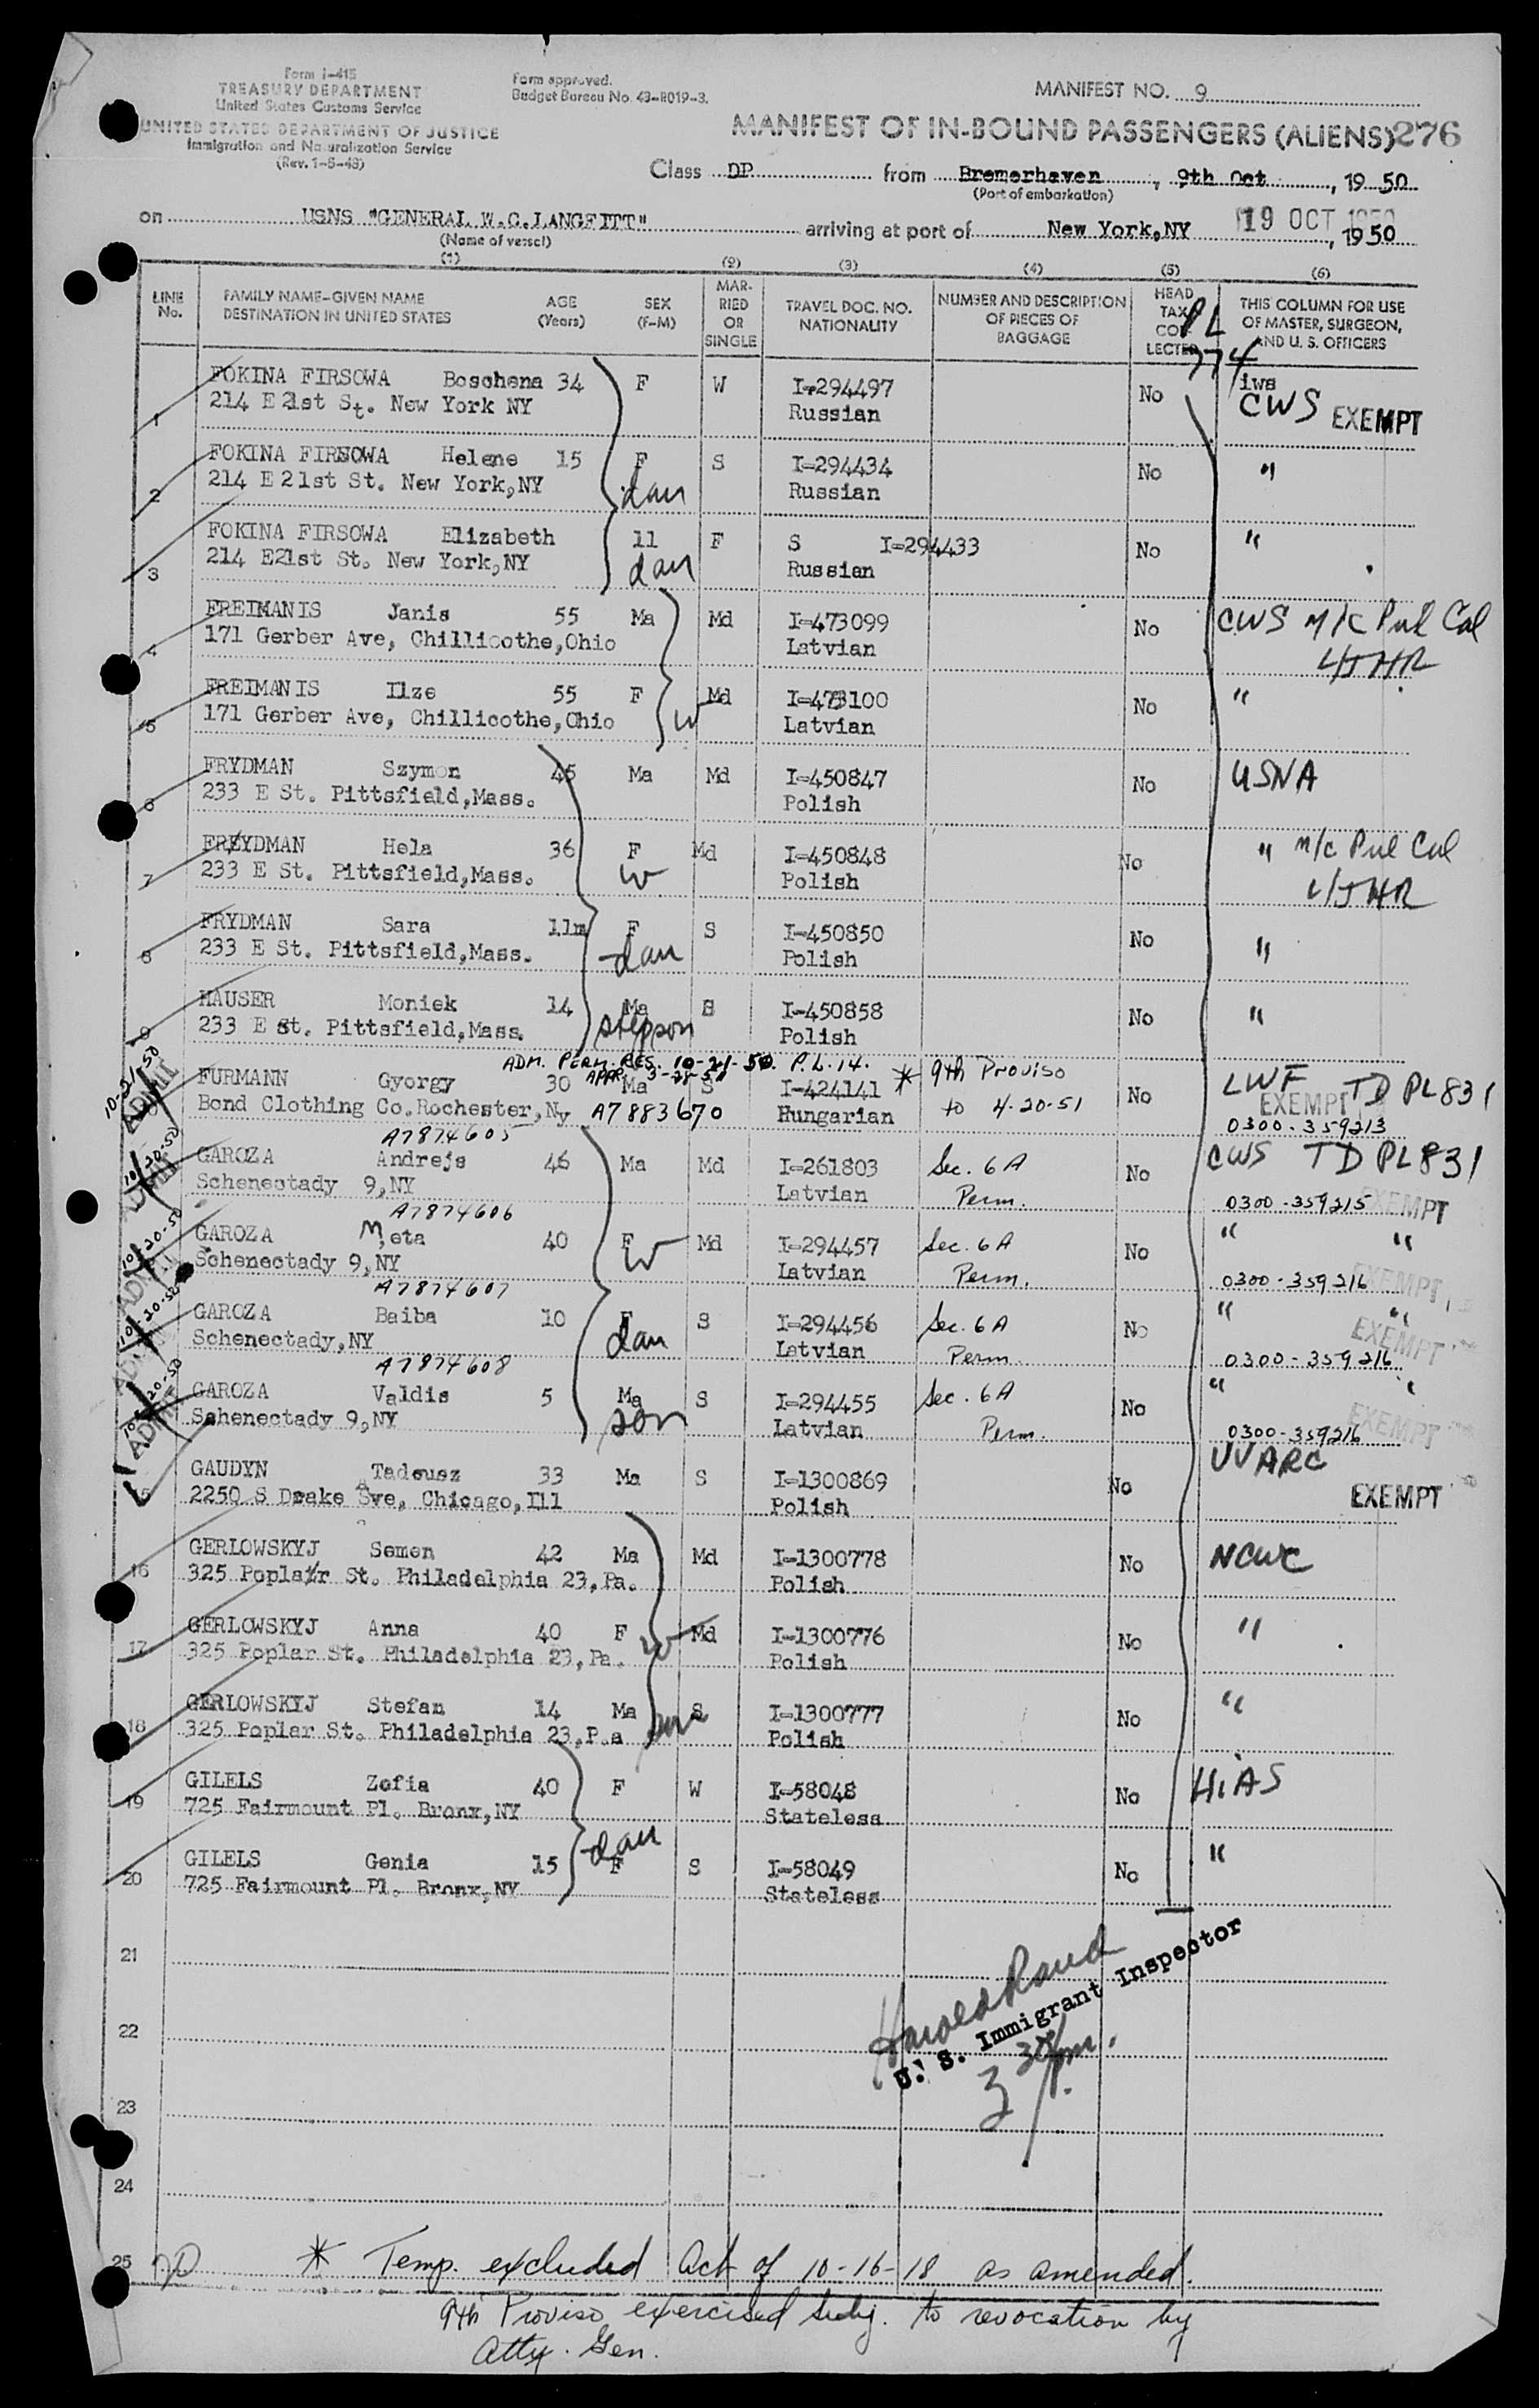 Form I-415
TREASURY DEPARTMENT
United States Customs Service
UNITED STATES DEPARTMENT OF JUSTICE
Immigration and Naturalization Service
(Rev. 1-5-48)
Form approved.
Budget Bureau No. 43-R019-3.
MANIFEST NO. 9
MANIFEST OF IN-BOUND PASSENGERS (ALIENS) 276
Class DP from Bremerhaven, 9th Oct, 1950
(Port of embarkation)
on USNS "GENERAL W.C.LANGFITT" arriving at port of New York,NY 19 OCT 1950, 1950
(Name of vessel)
(1) (2) (3) (4) (5) (6)
LINE No. FAMILY NAME-GIVEN NAME DESTINATION IN UNITED STATES AGE (Years) SEX (F-M) MARRIED OR SINGLE TRAVEL DOC. NO. NATIONALITY NUMBER AND DESCRIPTION OF PIECES OF BAGGAGE HEAD TAX COLLECTED THIS COLUMN FOR USE OF MASTER, SURGEON, AND U. S. OFFICERS
PL 774
1 FOKINA FIRSOWA Boschena 34 F W I-294497 No iws CWS EXEMPT
214 E 21st St. New York NY Russian
2 FOKINA FIRSOWA Helene 15 F S I-294434 No "
214 E 21st St. New York,NY dau Russian
3 FOKINA FIRSOWA Elizabeth 11 F S I-294433 No "
214 E21st St. New York,NY dau Russian
4 FREIMANIS Janis 55 Ma Md I-473099 No CWS M/C Pul Cal
171 Gerber Ave, Chillicothe,Ohio Latvian L/JHR
5 FREIMANIS Ilze 55 F Md I-473100 No "
171 Gerber Ave, Chillicothe,Ohio W Latvian
6 FRYDMAN Szymon 45 Ma Md I-450847 No USNA
233 E St. Pittsfield,Mass. Polish
7 FRYDMAN Hela 36 F Md I-450848 No " M/C Pul Cal
233 E St. Pittsfield,Mass. W Polish L/JHR
8 FRYDMAN Sara 11m F S I-450850 No "
233 E St. Pittsfield,Mass. dau Polish
9 HAUSER Moniek 14 Ma S I-450858 No "
233 E St. Pittsfield,Mass. stepson Polish
ADM. PERM. RES. 10-21-50. P.L.14.
10-21-50 ADMIT FURMANN Gyorgy 30 Ma S I-424141 * 9th Proviso No LWF TD PL831
Bond Clothing Co.Rochester,Ny A7883670 Hungarian to 4-20-51 EXEMPT
0300-359213
A7874605
10-20-50 GAROZA Andrejs 46 Ma Md I-261803 Sec. 6A No CWS TD PL831
Schenectady 9,NY Latvian Perm. 0300-359215 EXEMPT
A7874606
10-20-50 GAROZA Meta 40 F Md I-294457 Sec. 6A No " "
Schenectady 9,NY W Latvian Perm. 0300-359216 EXEMPT
A7874607
10-20-50 GAROZA Baiba 10 F S I-294456 Sec. 6A No " "
Schenectady,NY dau Latvian Perm. 0300-359216 EXEMPT
A7874608
10-20-50 GAROZA Valdis 5 Ma S I-294455 Sec. 6A No " "
Schenectady 9,NY son Latvian Perm. 0300-359216 EXEMPT
15 GAUDYN Tadeusz 33 Ma S I-1300869 No UUARC
2250 S Drake Ave, Chicago,Ill Polish EXEMPT
16 GERLOWSKYJ Semen 42 Ma Md I-1300778 No NCWC
325 Poplar St. Philadelphia 23,Pa. Polish
17 GERLOWSKYJ Anna 40 F W Md I-1300776 No "
325 Poplar St. Philadelphia 23,Pa. Polish
18 GERLOWSKYJ Stefan 14 Ma S I-1300777 No "
325 Poplar St. Philadelphia 23,P.a son Polish
19 GILELS Zofia 40 F W I-58048 No HIAS
725 Fairmount Pl. Bronx,NY Stateless
20 GILELS Genia 15 F S I-58049 No "
725 Fairmount Pl. Bronx,NY dau Stateless
21
22
Harold Rand
U. S. Immigrant Inspector
3 30 pm.
23
24
25 * Temp. excluded Act of 10-16-18 as amended.
9th Proviso exercised subj. to revocation by
Atty. Gen.